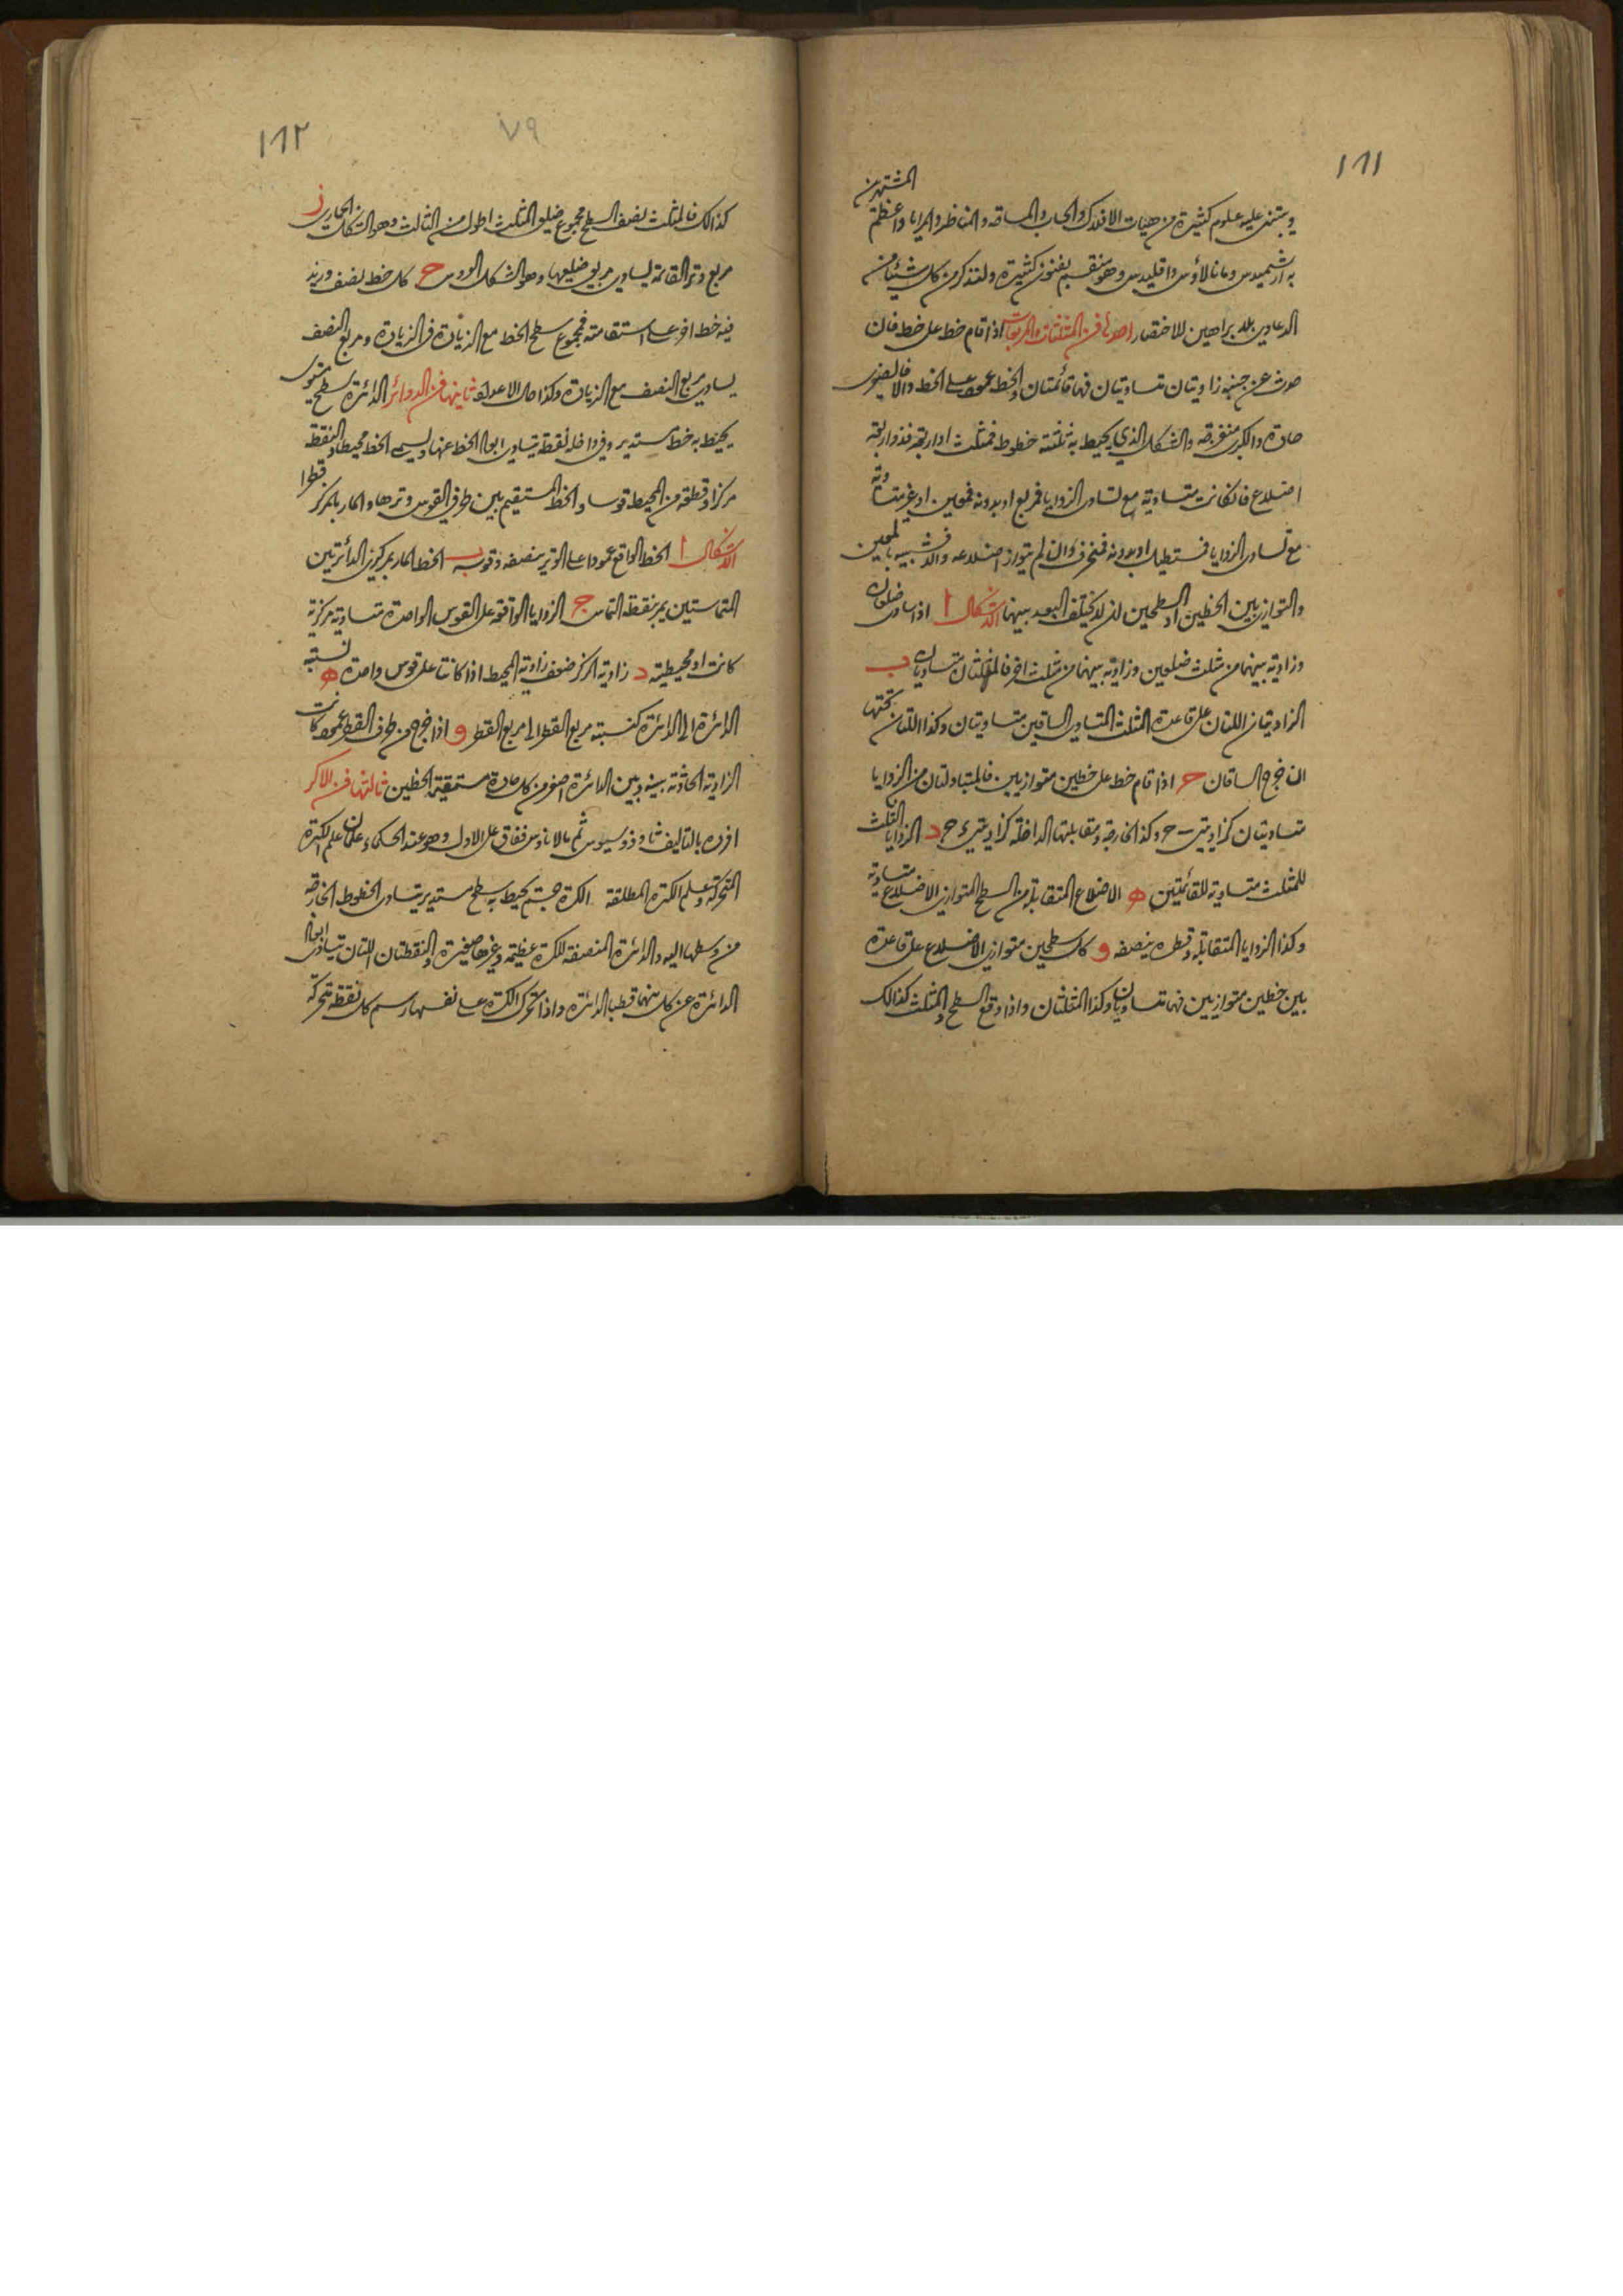 ١٨١
ويبتنى عليه علوم كثيرة من هيات الافلاك والحساب والمساحة والمناظر والمرايا واعظم المشتهرين
به ارشميدس ومانالاؤس واقليدس وهو منقسم بفنون كثيرة ولنذكر من كل شيئا من
الدعاوى بلا براهين للاختصار احدها فن المثلثات والمربعات اذا قام خط على خط فان
حدث عن جنبيه زاويتان متساويتان فهما قائمتان والخط عمود على الخط والا فالصغرى
حادة والكبرى منفرجة والشكل الذي يحيط به ثلثة خطوط فمثلث او اربعة فذو اربعة
اضلاع فان كانت متساوية مع تساوى الزوايا فمربع او بدونه فمعين او غير متساوية
مع تساوى الزوايا فمستطيل او بدونه فمنحرف وان لم يتواز اضلاعه والا فشبيه بالمعين
والتوازى بين الخطين او السطحين ان لا يختلف البعد بينهما الاشكال ا اذا ساوى ضلعان
وزاوية بينهما من مثلث ضلعين وزاوية بينهما من مثلث اخر فالمثلثان متساويان ب
الزاويتان اللتان على قاعدة المثلث المتساوى الساقين متساويتان وكذا اللتان تحتها
ان اخرج الساقان ج اذا قام خط على خطين متوازيين فالمتبادلتان من الزوايا
متساويتان كزاويتى ب ح وكذا الخارجة ومقابلتها الداخلة كزاويتى ء ح د الزوايا الثلث
للمثلث متساوية للقائمتين ه الاضلاع المتقابلة من السطح المتوازى الاضلاع متساوية
وكذا الزوايا المتقابلة وقطره ينصفه و كل سطحين متوازى الاضلاع على قاعدة
بين خطين متوازيين فهما متساويان وكذا المثلثان واذا وقع السطح والمثلث كذالك
١٨٢
٧٩
كذالك فالمثلث نصف السطح مجموع ضلعى المثلث اطول من الثالث وهو الشكل الحمارى ز
مربع وتر القائمة يساوى مربعى ضلعيها وهو الشكل العروس ح كل خط نصف وزيد
فيه خط اخر على استقامته فمجموع سطح الخط مع الزيادة فى الزيادة ومربع النصف
يساوى مربع النصف مع الزيادة وكذا حال الاعداد ثانيها فن الدوائر الدائرة سطح مستو
يحيط به خط مستدير وفى داخله نقطة يتساوى ابعاد الخط عنها ويسمى الخط محيطا والنقطة
مركزا وقطعة من المحيط قوسا والخط المستقيم بين طرفى القوس وترها والمار بالمركز قطرا
الاشكال ا الخط الواقع عمودا على الوتر ينصفه وقوسه ب الخط المار بمركزى الدائرتين
المتماستين يمر بنقطة التماس ج الزوايا الواقعة على القوس الواحدة متساوية مركزية
كانت او محيطية د زاوية المركز ضعف زاوية المحيط اذا كانتا على قوس واحدة ه نسبة
الدائرة الى الدائرة كنسبة مربع القطر الى مربع القطر و اذا خرج من طرف القطر عمود كانت
الزاوية الحادثة بينه وبين الدائرة اصغر من كل حادة مستقيمة الخطين ثالثها فن الاكر
افرده بالتاليف ثاوذوسيوس ثم مالاناوس ففاق على الاول وهو عند الحكماء علمان علم الكرة
المتحركة وعلم الكرة المطلقة الكرة جسم يحيط به سطح مستدير يتساوى الخطوط الخارجة
من وسطها اليه والدائرة المنصفة للكرة عظيمة وغيرها صغيرة والنقطتان اللتان يتساوى ابعاد
الدائرة عن كل منهما قطبا الدائرة واذا تحرك الكرة على نفسها رسم كل نقطة متحركة